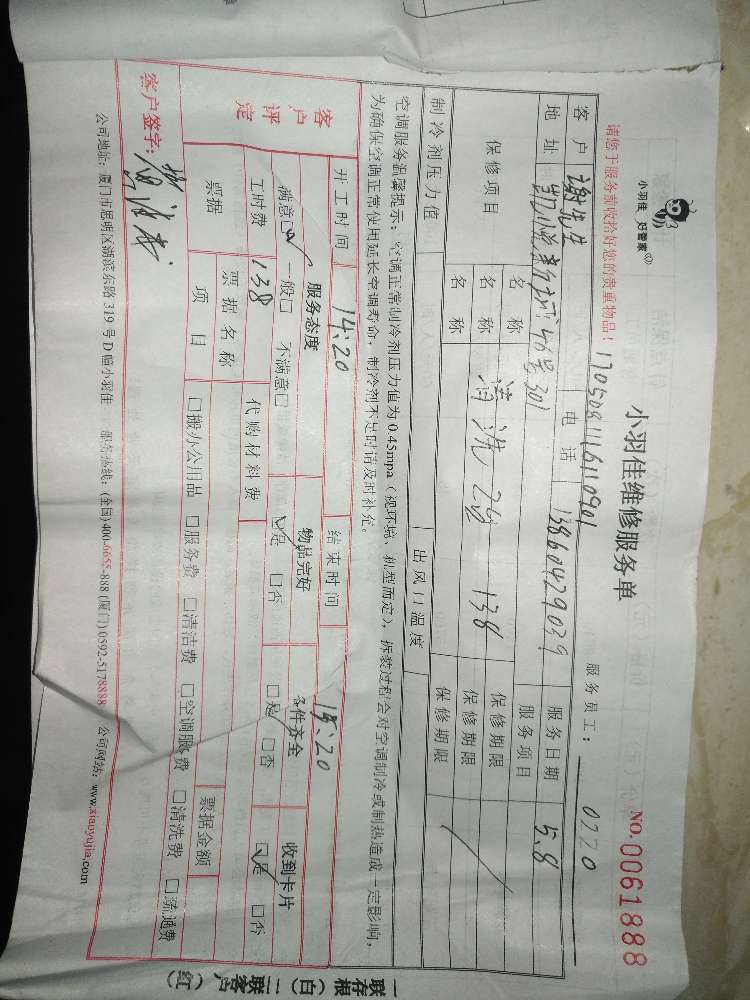 小羽佳 好管家
小羽佳维修服务单
NO.0061888
请您于服务前收拾好您的贵重物品！ 1705081116110901 服务员工： 0220
客户 谢先生 电话 13860429039 服务日期 5.8
地址 凯悦新城40号301 服务项目
保修项目 名称 保修期限
名称 清洗2台 138 保修期限
名称 保修期限
制冷剂压力值 出风口温度
空调服务温馨提示：空调正常制冷剂压力值为0.45mpa（视环境、机型而定），拆装过程会对空调制冷或制热造成一定影响，
为确保空调正常使用延长空调寿命，制冷剂不足时请及时补充。
客户评定
开工时间 14:20 结束时间 15:20
服务态度 物品完好 条件齐全 收到卡片
满意☑ 一般□ 不满意□ ☑是 □否 ☑是 □否 ☑是 □否
工时费 138 代购材料费
票据 票据名称 票据金额
项目 □搬办公用品 □服务费 □清洁费 □空调服务费 □清洗费 □疏通费
客户签字：
公司地址：厦门市思明区湖滨东路319号D幢小羽佳 服务热线：(全国)400-6655-888 (厦门)0592-5178888 公司网站：www.xiaoyujia.com
一联存根（白）二联客户（红）